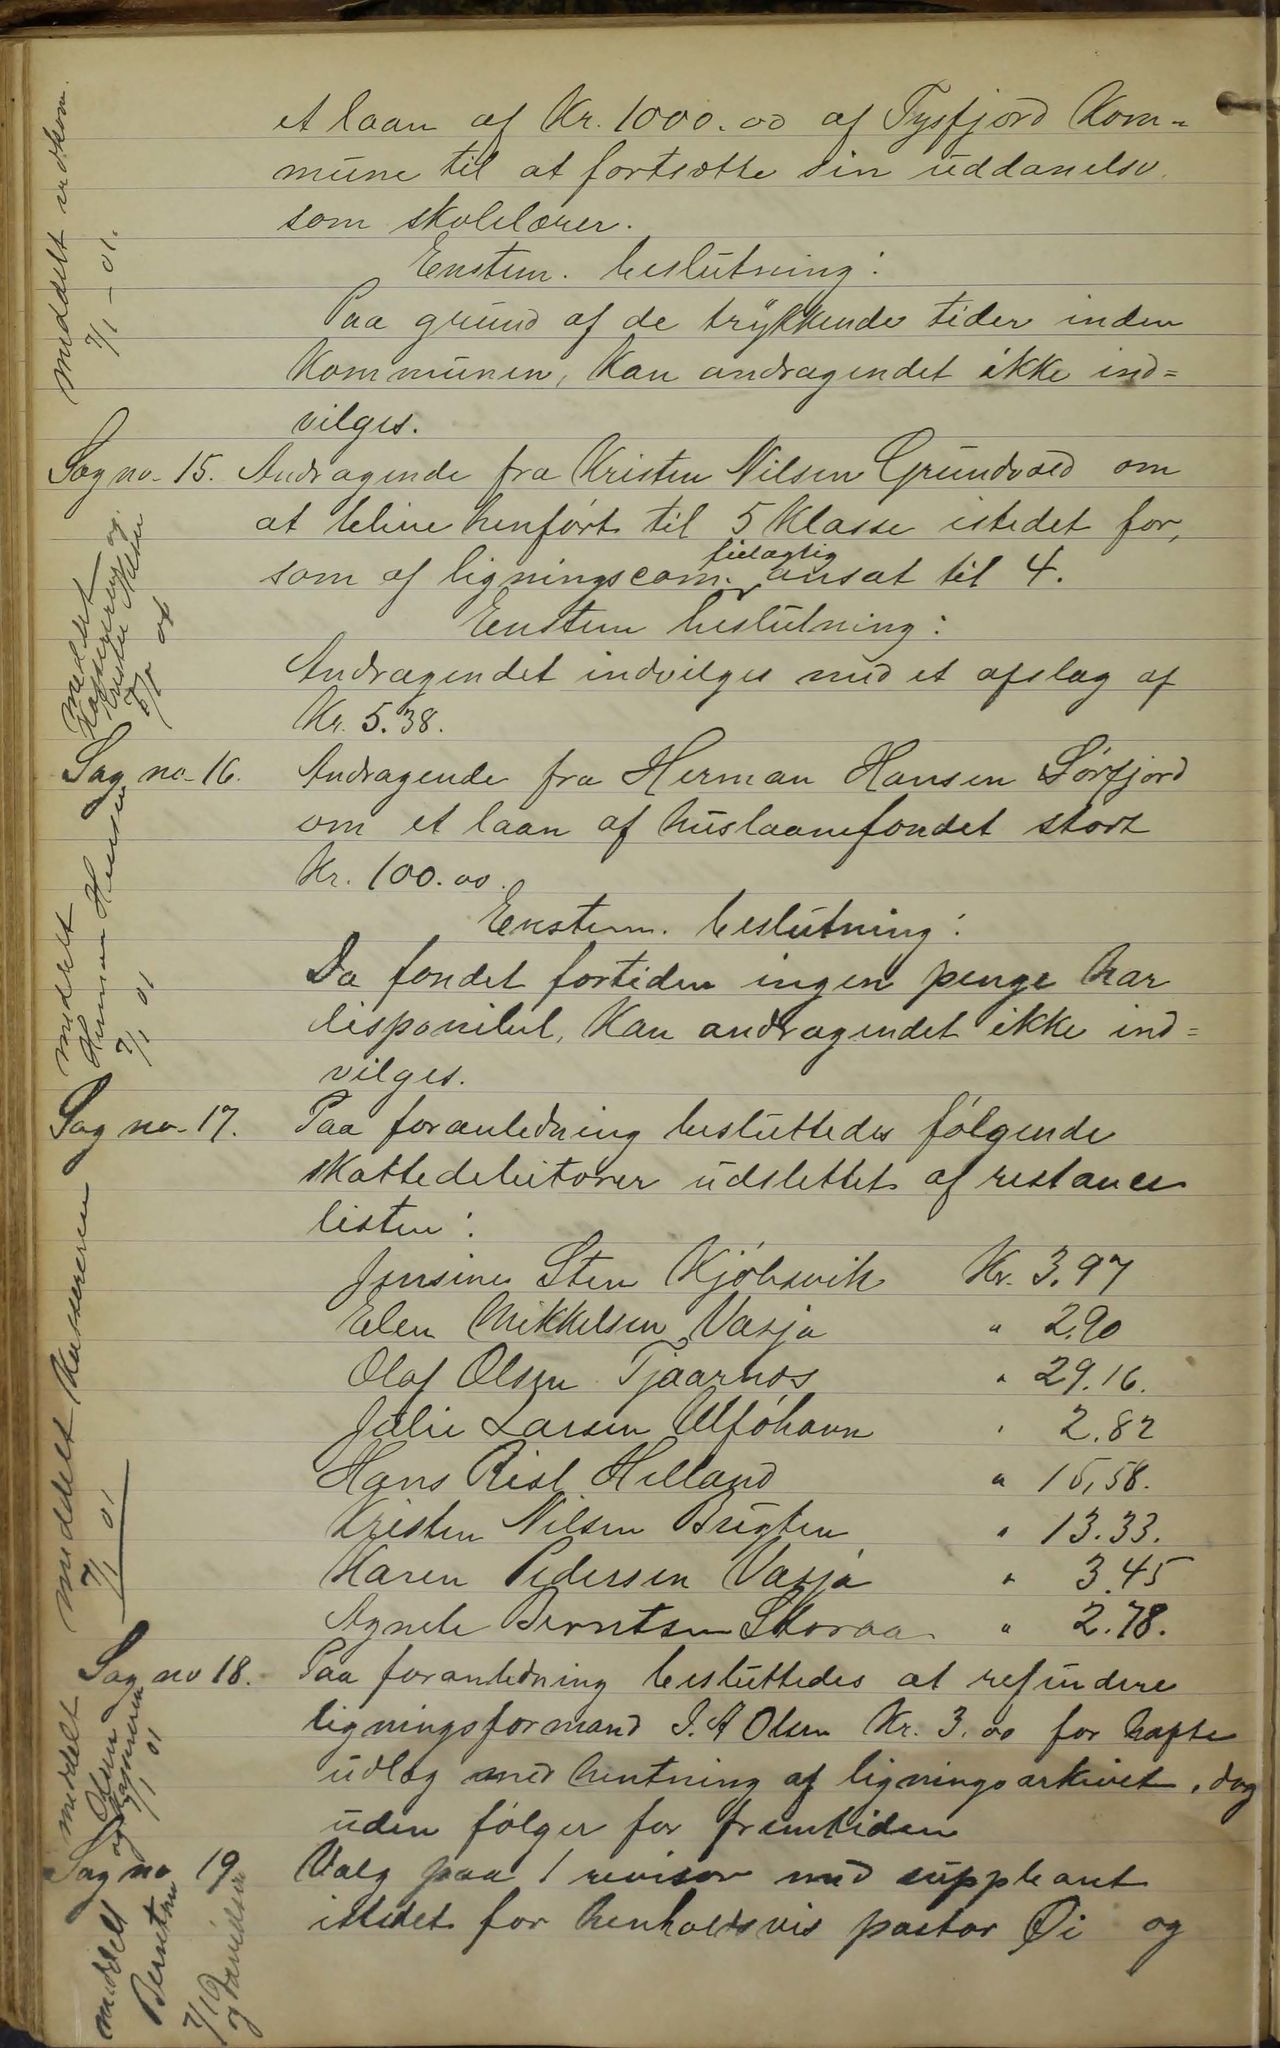 et laan af Kr. 1000.00 af Tysfjord Kom=
mune til at fortsætte sin uddanelse
som skolelærer.
Enstem. beslutning:
Paa grund af de trykkende tider inden
Kommunen, kan andragendet ikke ind=
vilges.
meddelt vedkom.
7/1 - 01.
Sag no. 15. Andragende fra Kristen Nilsen Grundvaed om
at blive henført til 5 Klasse istedet for,
feilagtig
som af ligningscom. ansat til 4.
Enstem beslutning:
Andragendet indvilges med et afslag af
Kr. 5.38.
meddelt
Kassereren og
Kristen Nilsen
Sag no. 16. Andragende fra Herman Hansen Sørfjord
om et laan af huslaanefondet stort
Kr. 100.00.
Enstem. beslutning:
Da fondet fortiden ingen penge har
disponibel, kan andragendet ikke ind=
vilges.
meddelt
Herman Hansen
7/1 01
Sag no. 17. Paa foranledning besluttedes følgende
skattedebitorer udslettet af restance
listen:
Jensine Sten Kjøbsvik Kr. 3.97
Elen Mikkelsen Vasja " 2.90
Olaf Olsen Tjaarnes " 29.16.
Julie Larsen Ulføhavn " 2.82
Hans Rist Helland " 15,58.
Kristen Nilsen Bugten " 13.33.
Karen Pedersen Vasja " 3.45
Agnete Berntsen Skoraa " 2.78.
meddelt Kassereren
7/1 01
Sag no 18. Paa foranledning besluttedes at refundere
ligningsformand J. A Olsen Kr. 3.00 for hafte
udlæg med hentning af ligningsarkivet, dog
uden følger for fremtiden
meddelt
Olsen
og Kassereren
7/1 01
Sag no 19 Valg paa 1 revisor med suppleant
istedet for henholdsvis pastor Øi og
meddelt
Berntsen
og Danielsen